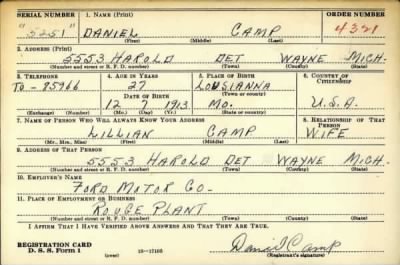 SERIAL NUMBER 1. NAME (Print) ORDER NUMBER
"3251" DANIEL CAMP 4321
(First) (Middle) (Last)
2. ADDRESS (Print)
5553 HAROLD DET WAYNE MICH.
(Number and street or R. F. D. number) (Town) (County) (State)
3. TELEPHONE 4. AGE IN YEARS 5. PLACE OF BIRTH 6. COUNTRY OF CITIZENSHIP
TO-85966 27 LOUSIANNA
(Town or county)
DATE OF BIRTH
12 7 1913 MO. U.S.A.
(Exchange) (Number) (Mo.) (Day) (Yr.) (State or country)
7. NAME OF PERSON WHO WILL ALWAYS KNOW YOUR ADDRESS 8. RELATIONSHIP OF THAT PERSON
LILLIAN CAMP WIFE
(Mr., Mrs., Miss) (First) (Middle) (Last)
9. ADDRESS OF THAT PERSON
5553 HAROLD DET WAYNE MICH.
(Number and street or R. F. D. number) (Town) (County) (State)
10. EMPLOYER'S NAME
FORD MOTOR CO.
11. PLACE OF EMPLOYMENT OR BUSINESS
ROUGE PLANT
(Number and street or R. F. D. number) (Town) (County) (State)
I AFFIRM THAT I HAVE VERIFIED ABOVE ANSWERS AND THAT THEY ARE TRUE.
REGISTRATION CARD
D. S. S. Form 1 (over) 16-17105 Daniel Camp
(Registrant's signature)